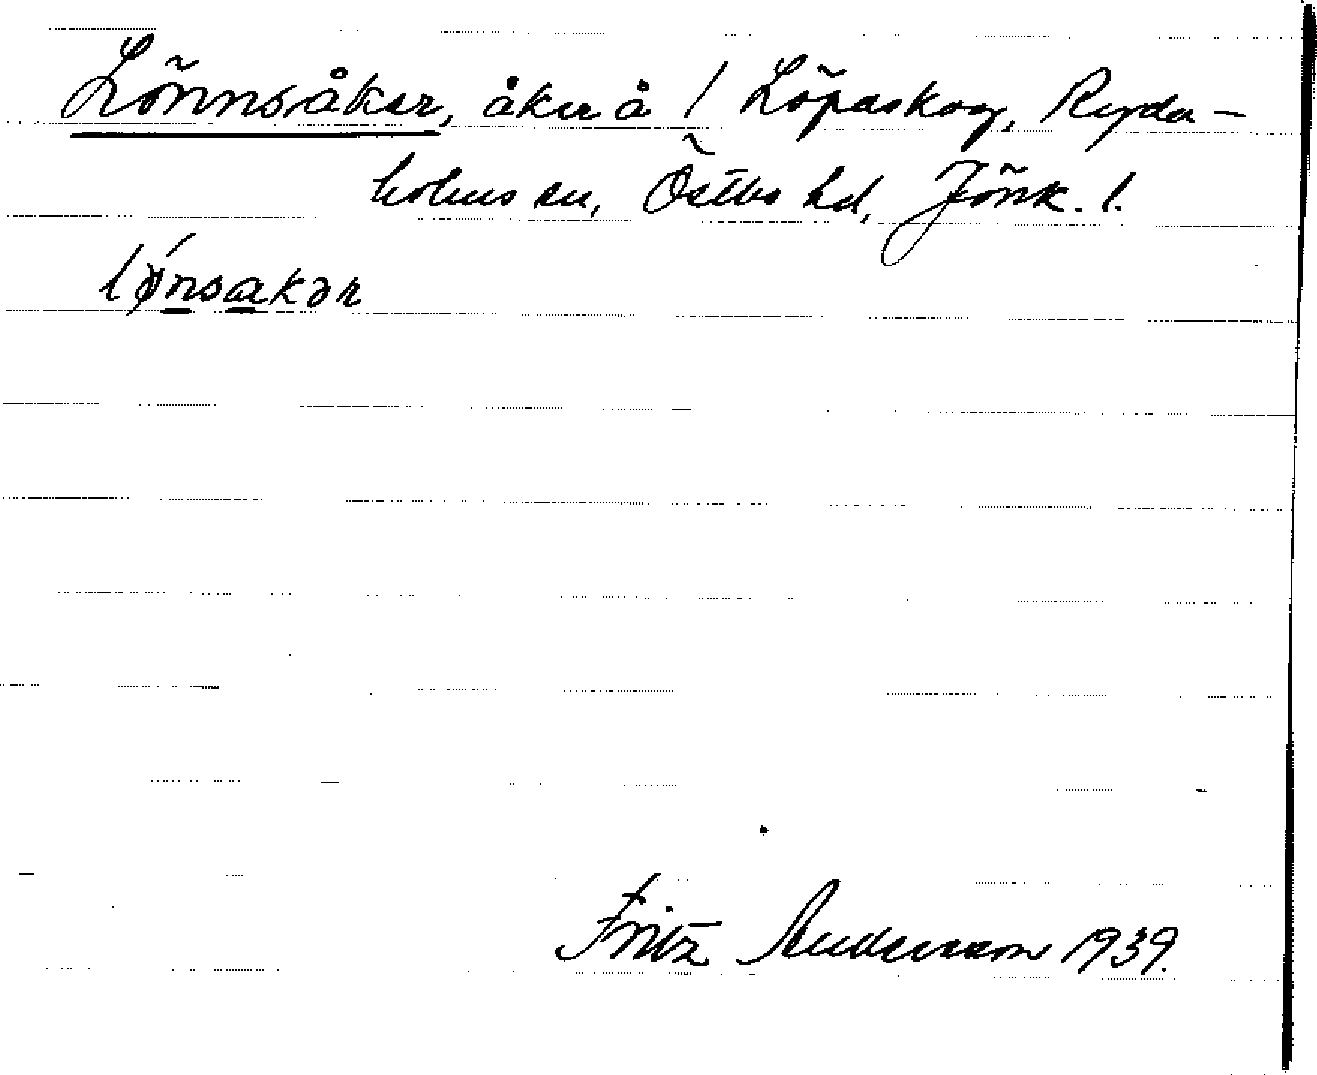 Lönnsåker, åker å / Löpaskog, Ryda-
holms sn, Östbo hd, Jönk. l.
lǿnsakər
Fritz Andersson 1939.